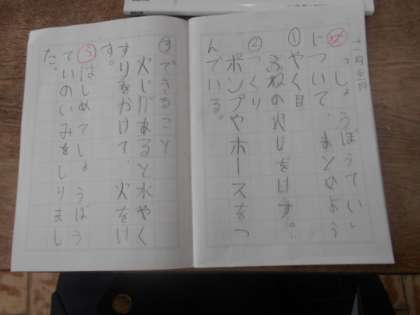 十一月
め
「しょうぼうてい」
について、まとめよう
①やく目
ふねの火じをけす。
②つくり
ポンプやホースをつ
んでいる。
③できること
火じがあると水やく
すりをかけて、火をけ
す。
ふ
はじめてしょうぼう
ていのいみをしりまし
た。